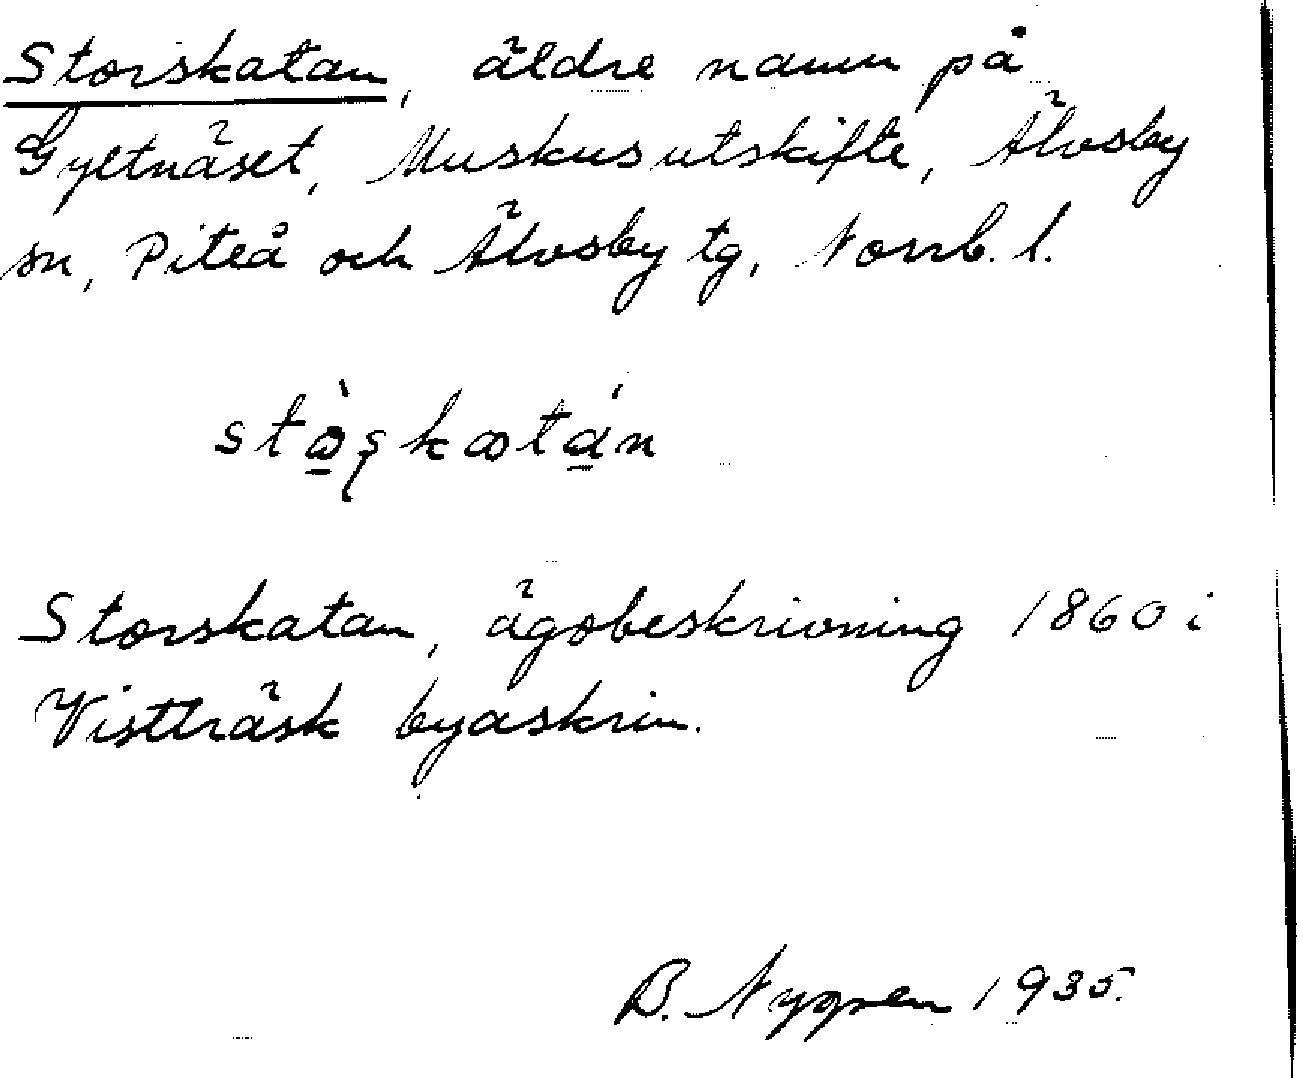 Storskatan, äldre namn på
Gyltnäset, Muskus utskifte, Älvsby
sn, Piteå och Älvsby tg, Norrb. l.
Storskatan, ägobeskrivning 1860 i
Vistträsk byaskrin.
B. Nygren 1935.